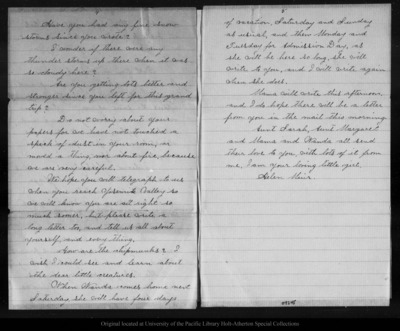 Have you had any fine snow
storms since you wrote?
I wonder if there were any
thunder storms up there when it was
so cloudy here?
Are you getting lots better and
stronger since you left for this grand
trip?
Do not worry about your
papers for we have not touched a
speck of dust in your room, or
moved a thing, nor about fire, because
we are very careful.
Perhaps you will telegraph to us
when you reach Yosemite Valley so
we will know you are all right so
much sooner, but please write a
long letter too, and tell us all about
yourself and every thing.
How are the chipmunks? I
wish I could see and learn about
the dear little creatures.
When Wanda comes home next
Saturday she will have four days
of vacation, Saturday and Sunday
as usual, and then Monday and
Tuesday for Admission Day, as
she will be here so long, she will
write to you, and I will write again
when she does.
Mama will write this afternoon,
and I do hope there will be a letter
from you in the mail this morning.
Aunt Sarah, Aunt Margaret
and Mama and Wanda all send
their love to you, with lots of it from
me, I am your loving little girl,
Helen Muir.
Original located at University of the Pacific Library Holt-Atherton Special Collections